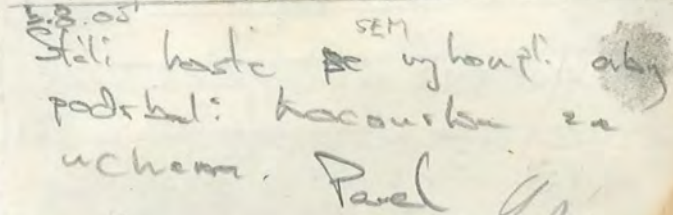 5.8.05
Stálí hosté se SEM vyhoupli aby
podrbali kocourka za
uchem. Pavel